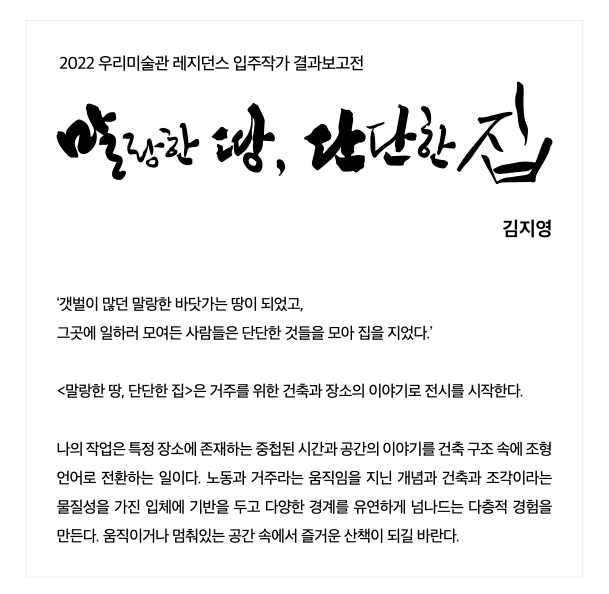 2022 우리미술관 레지던스 입주작가 결과보고전
말랑한 땅, 단단한 집
김지영
‘갯벌이 많던 말랑한 바닷가는 땅이 되었고,
그곳에 일하러 모여든 사람들은 단단한 것들을 모아 집을 지었다.’
<말랑한 땅, 단단한 집>은 거주를 위한 건축과 장소의 이야기로 전시를 시작한다.
나의 작업은 특정 장소에 존재하는 중첩된 시간과 공간의 이야기를 건축 구조 속에 조형
언어로 전환하는 일이다. 노동과 거주라는 움직임을 지닌 개념과 건축과 조각이라는
물질성을 가진 입체에 기반을 두고 다양한 경계를 유연하게 넘나드는 다층적 경험을
만든다. 움직이거나 멈춰있는 공간 속에서 즐거운 산책이 되길 바란다.